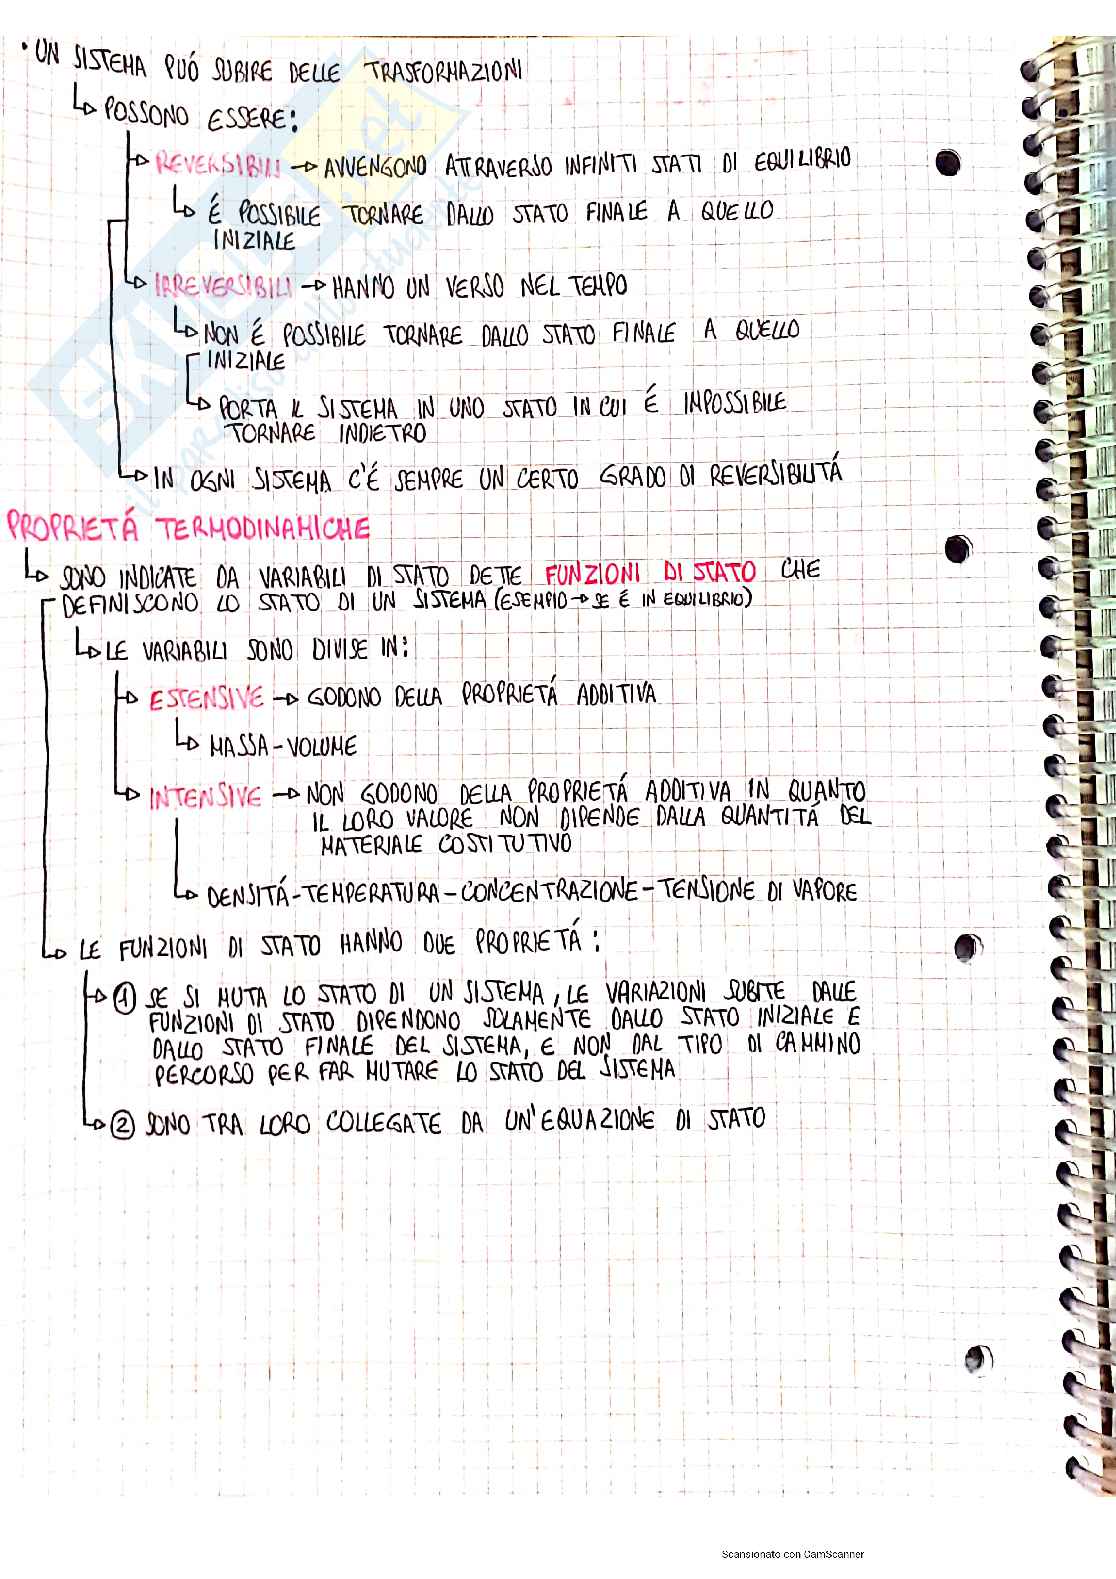 • UN SISTEMA PUÓ SUBIRE DELLE TRASFORMAZIONI
↳ POSSONO ESSERE:
→ REVERSIBILI → AVVENGONO ATTRAVERSO INFINITI STATI DI EQUILIBRIO
↳ É POSSIBILE TORNARE DALLO STATO FINALE A QUELLO
INIZIALE
→ IRREVERSIBILI → HANNO UN VERSO NEL TEMPO
↳ NON É POSSIBILE TORNARE DALLO STATO FINALE A QUELLO
INIZIALE
↳ PORTA IL SISTEMA IN UNO STATO IN CUI É IMPOSSIBILE
TORNARE INDIETRO
→ IN OGNI SISTEMA C'É SEMPRE UN CERTO GRADO DI REVERSIBILITÁ
PROPRIETÁ TERMODINAMICHE
↳ SONO INDICATE DA VARIABILI DI STATO DETTE FUNZIONI DI STATO CHE
DEFINISCONO LO STATO DI UN SISTEMA (ESEMPIO → SE É IN EQUILIBRIO)
↳ LE VARIABILI SONO DIVISE IN:
→ ESTENSIVE → GODONO DELLA PROPRIETÁ ADDITIVA
↳ MASSA - VOLUME
→ INTENSIVE → NON GODONO DELLA PROPRIETÁ ADDITIVA IN QUANTO
IL LORO VALORE NON DIPENDE DALLA QUANTITÁ DEL
MATERIALE COSTITUTIVO
↳ DENSITÁ - TEMPERATURA - CONCENTRAZIONE - TENSIONE DI VAPORE
↳ LE FUNZIONI DI STATO HANNO DUE PROPRIETÁ:
→ ① SE SI MUTA LO STATO DI UN SISTEMA, LE VARIAZIONI SUBITE DALLE
FUNZIONI DI STATO DIPENDONO SOLAMENTE DALLO STATO INIZIALE E
DALLO STATO FINALE DEL SISTEMA, E NON DAL TIPO DI CAMMINO
PERCORSO PER FAR MUTARE LO STATO DEL SISTEMA
→ ② SONO TRA LORO COLLEGATE DA UN'EQUAZIONE DI STATO
Scansionato con CamScanner